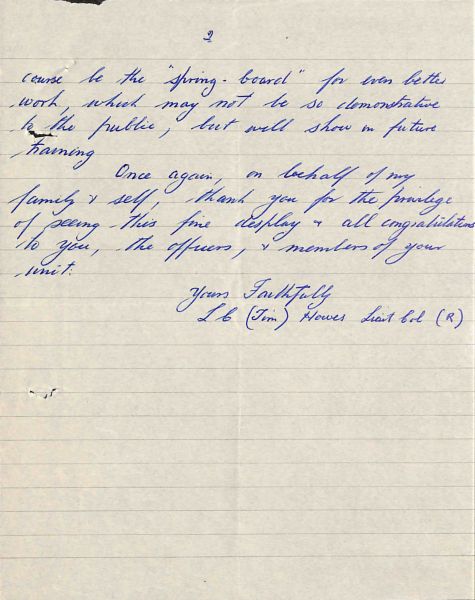 2
course be the "spring-board" for even better
work, which may not be so demonstrative
to the public, but will show in future
training
Once again, on behalf of my
family & self, thank you for the privilege
of seeing this fine display & all congratulations
to you, the officers, & members of your
unit.
Yours Faithfully
L C (Tim) Howes Lieut Col (R)